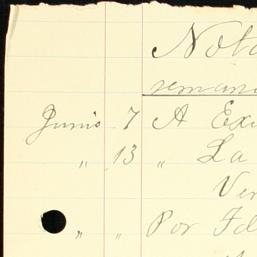 Nota
seman
Junio 7 A Exi
" 13 " La
Ven
" " Por Id